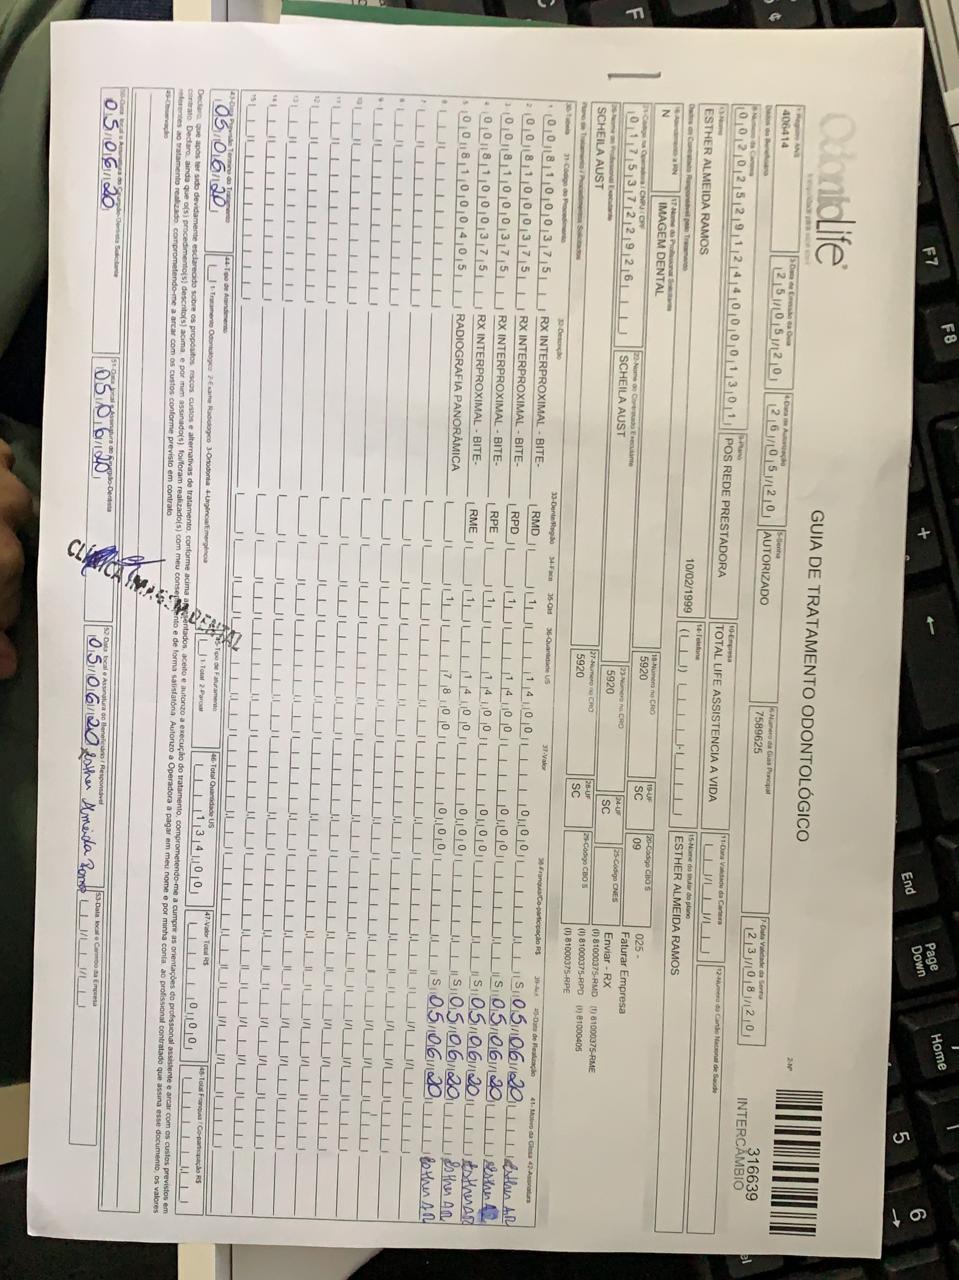 OdontoLife®
GUIA DE TRATAMENTO ODONTOLÓGICO
2-Nº
316639
INTERCÂMBIO
1-Registro ANS
406414
3-Data de Emissão da Guia
25/05/20
4-Data de Autorização
26/05/20
5-Senha
AUTORIZADO
6-Número da Guia Principal
7589625
7-Data Validade da Senha
23/08/20
Dados do Beneficiário
8-Número da Carteira
00202529124400001301
9-Plano
POS REDE PRESTADORA
10-Empresa
TOTAL LIFE ASSISTENCIA A VIDA
11-Data Validade da Carteira
12-Número do Cartão Nacional de Saúde
13-Nome
ESTHER ALMEIDA RAMOS
10/02/1999
14-Telefone
15-Nome do titular do plano
ESTHER ALMEIDA RAMOS
Dados do Contratado Responsável pelo Tratamento
16-Atendimento a RN
N
17-Nome do Profissional Solicitante
IMAGEM DENTAL
18-Número no CRO
5920
19-UF
SC
20-Código CBO S
09
025 -
Faturar Empresa
Enviar - RX
21-Código na Operadora / CNPJ / CPF
01753722926
22-Nome do Contratado Executante
SCHEILA AUST
23-Número no CRO
5920
24-UF
SC
25-Código CNES
26-Nome do Profissional Executante
SCHEILA AUST
27-Número no CRO
5920
28-UF
SC
29-Código CBO S
(I) 81000375-RMD (I) 81000375-RME
(I) 81000375-RPD (I) 81000405
(I) 81000375-RPE
Plano de Tratamento / Procedimentos Solicitados
30-Tabela 31-Código do Procedimento 32-Descrição 33-Dente/Região 34-Face 35-Qtd 36-Quantidade US 37-Valor 38-Franquia/Co-participação R$ 39-Aut 40-Data de Realização 41- Motivo da Glosa 42-Assinatura
1 00 81000375 RX INTERPROXIMAL - BITE- RMD 1 14,00 0,00 S 05/06/20 Esther AR
2 00 81000375 RX INTERPROXIMAL - BITE- RPD 1 14,00 0,00 S 05/06/20 Esther A
3 00 81000375 RX INTERPROXIMAL - BITE- RPE 1 14,00 0,00 S 05/06/20 Esther AR
4 00 81000375 RX INTERPROXIMAL - BITE- RME 1 14,00 0,00 S 05/06/20 Esther AR
5 00 81000405 RADIOGRAFIA PANORÂMICA 1 78,00 0,00 S 05/06/20 Esther AR
6
7
8
9
10
11
12
13
14
15
43-Data Previsão Término do Tratamento
05/06/20
44-Tipo de Atendimento
1-Tratamento Odontológico 2-Exame Radiológico 3-Ortodontia 4-Urgência/Emergência
45-Tipo de Faturamento
1-Total 2-Parcial
46-Total Quantidade US
134,00
47-Valor Total R$
0,00
48-Total Franquia / Co-participação R$
Declaro, que após ter sido devidamente esclarecido sobre os propósitos, riscos, custos e alternativas de tratamento, conforme acima apresentados, aceito e autorizo a execução do tratamento, comprometendo-me a cumprir as orientações do profissional assistente e arcar com os custos previstos em
contrato. Declaro, ainda que o(s) procedimento(s) descrito(s) acima, e por mim assinado(s) foi/foram realizado(s) com meu consentimento e de forma satisfatória. Autorizo a Operadora a pagar em meu nome e por minha conta, ao profissional contratado que assina esse documento, os valores
referentes ao tratamento realizado, comprometendo-me a arcar com os custos conforme previsto em contrato
49-Observação
CLÍNICA IMAGEM DENTAL
50-Data local e Assinatura do Cirurgião-Dentista Solicitante
05/06/20
51-Data local e Assinatura do Cirurgião-Dentista
05/06/20
52-Data local e Assinatura do Beneficiário / Responsável
05/06/20 Esther Almeida Ramos
53-Data local e Carimbo da Empresa
F7
F8
End
Page
Down
Home
5
6